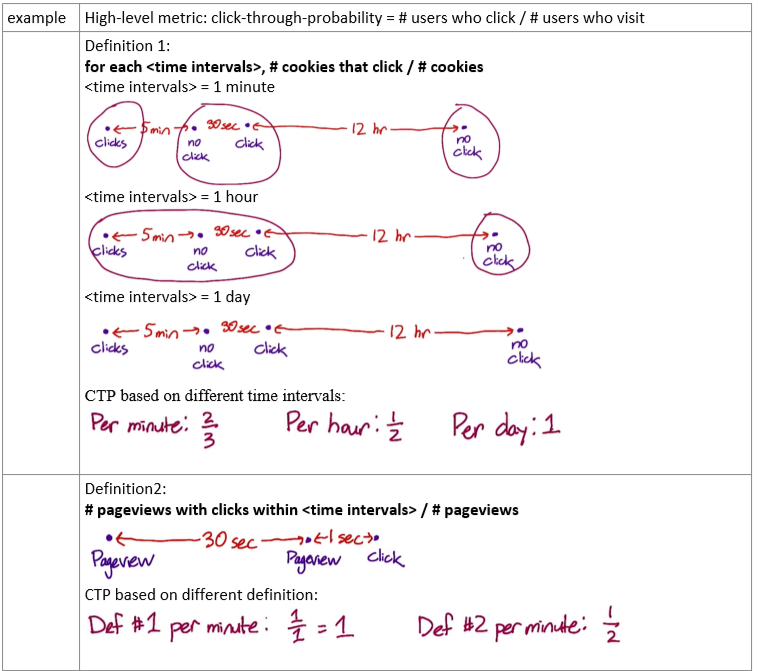 example High-level metric: click-through-probability = # users who click / # users who visit
Definition 1:
for each <time intervals>, # cookies that click / # cookies
<time intervals> = 1 minute
5 min 30 sec 12 hr
clicks no click click no click
<time intervals> = 1 hour
5 min 30 sec 12 hr
clicks no click click no click
<time intervals> = 1 day
5 min 30 sec 12 hr
clicks no click click no click
CTP based on different time intervals:
Per minute: 2/3 Per hour: 1/2 Per day: 1
Definition2:
# pageviews with clicks within <time intervals> / # pageviews
30 sec 1 sec
Pageview Pageview click
CTP based on different definition:
Def #1 per minute: 1/1 = 1 Def #2 per minute: 1/2